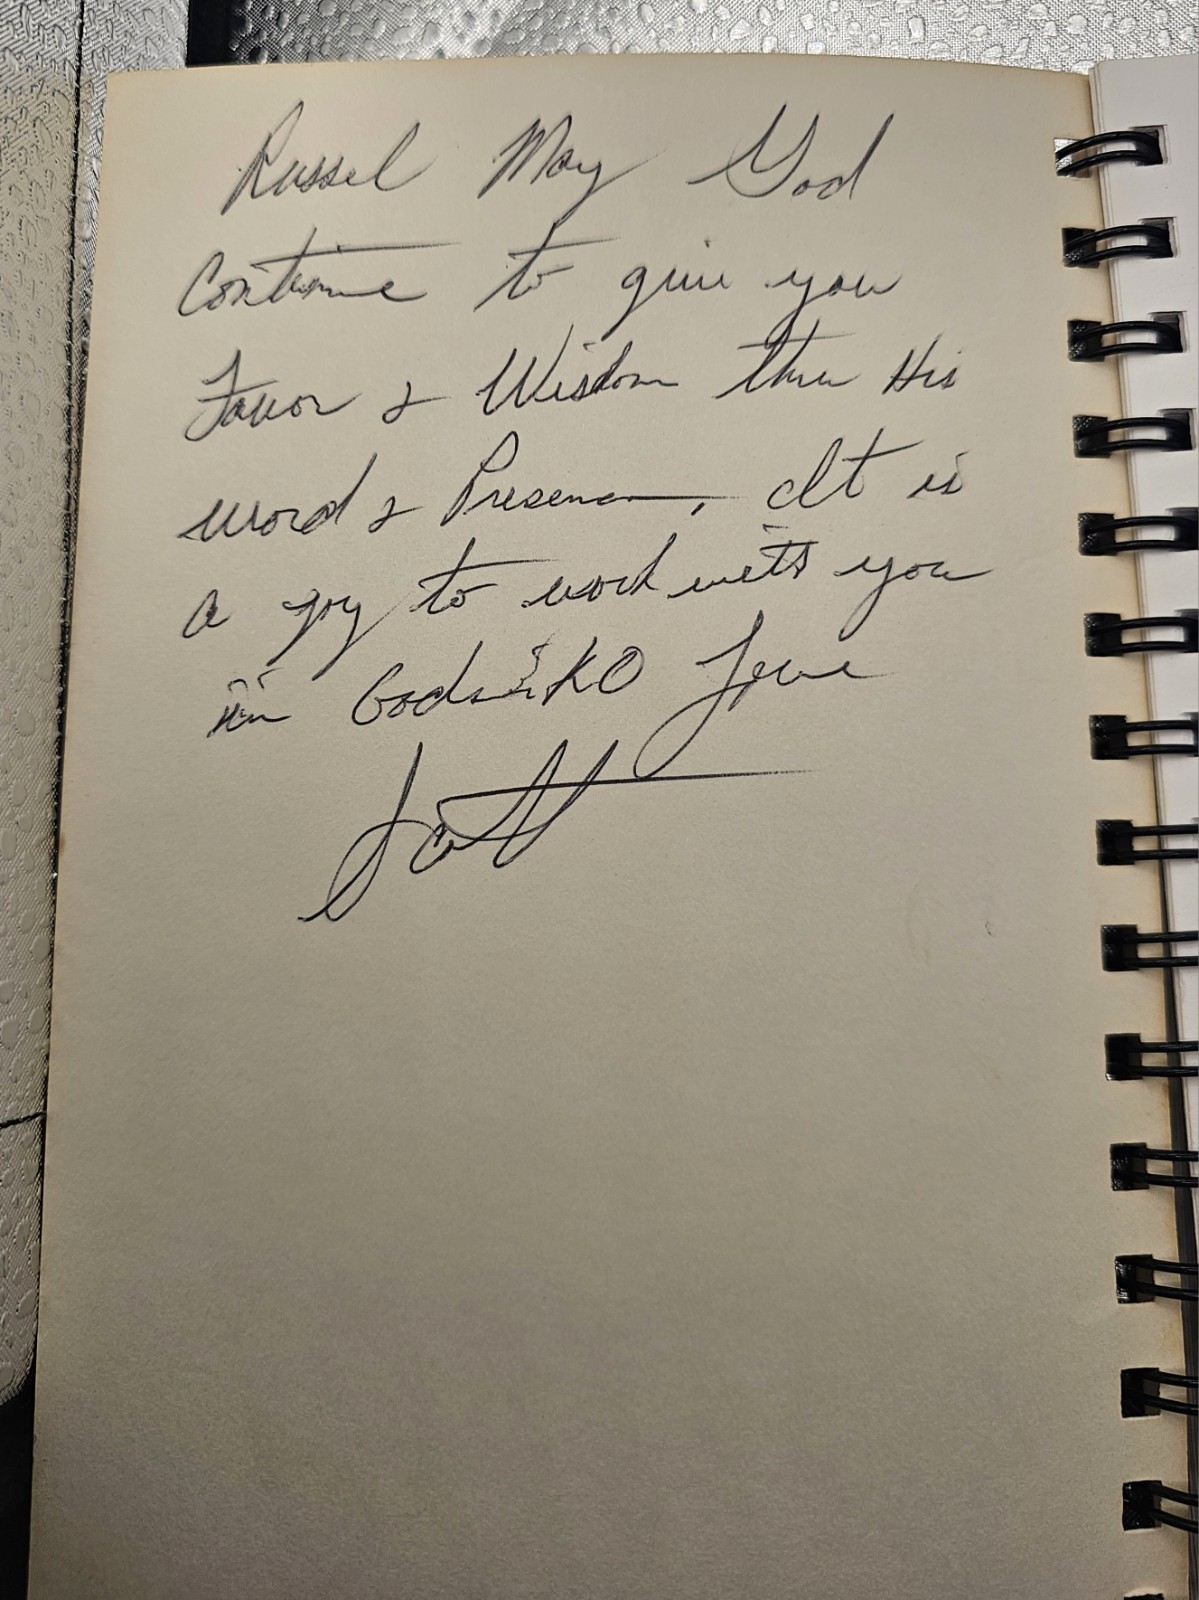 Russel May God
Continue to give you
Favor & Wisdom thru His
word & Presence, It is
a joy to work with you
in Gods Love
Scott